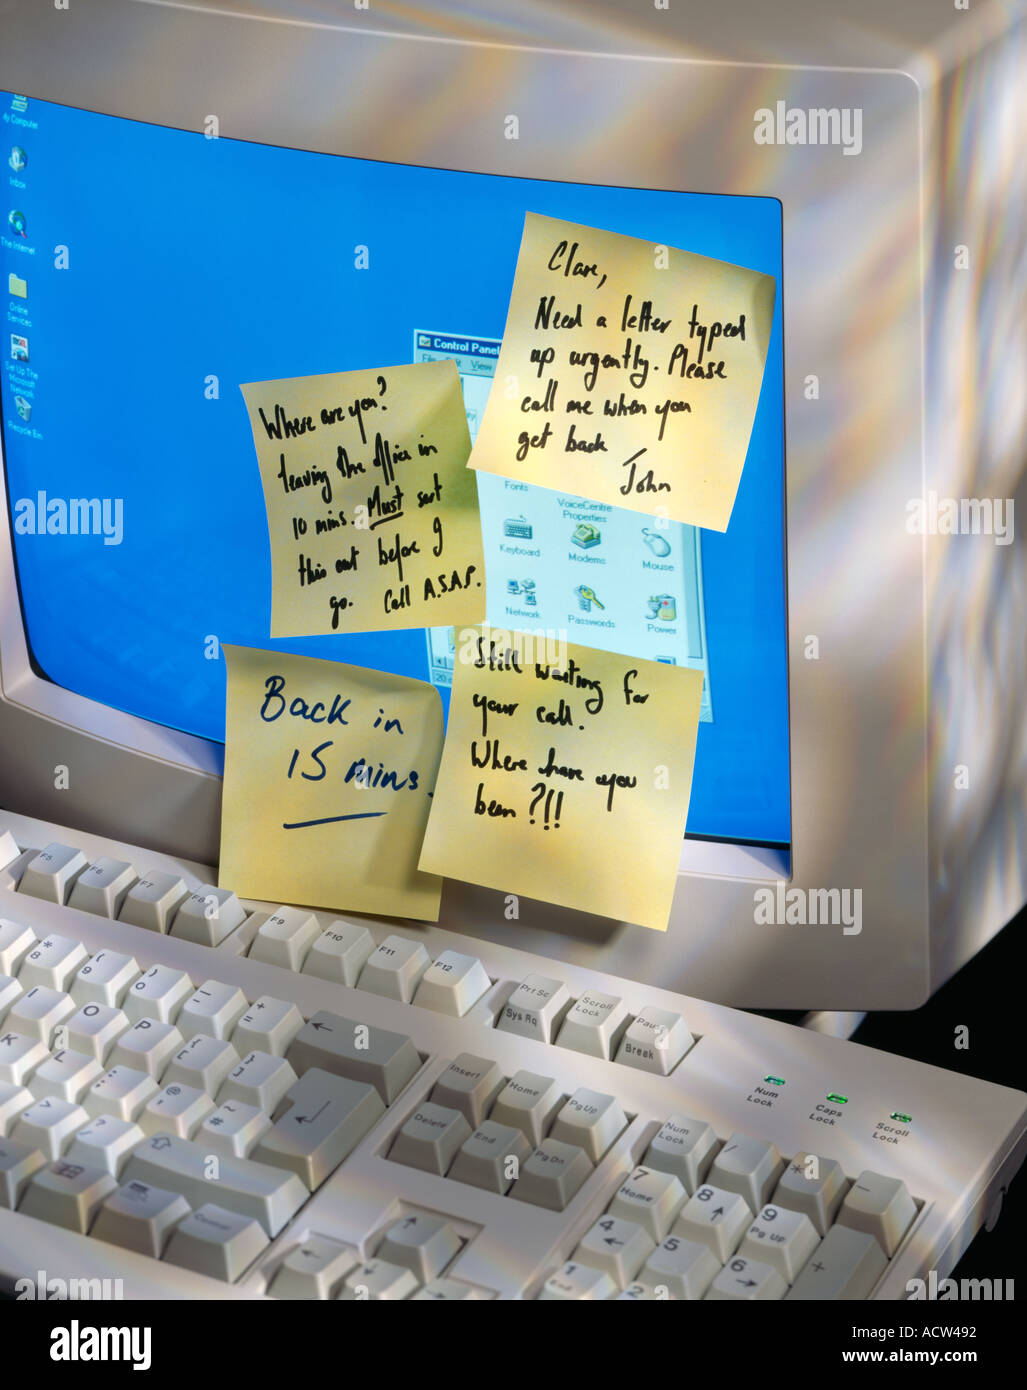 My Computer
Inbox
The Internet
Online
Services
Set Up The
Microsoft
Network
Recycle Bin
Control Panel
File Edit View
Fonts
VoiceCentre
Properties
Keyboard
Modems
Mouse
Network
Passwords
Power
Clare,
Need a letter typed
up urgently. Please
call me when you
get back
John
Where are you?
leaving the office in
10 mins. Must sort
this out before I
go. Call A.S.A.P.
Back in
15 mins.
Still waiting for
your call.
Where have you
been?!!!
F5
F6
F7
F8
F9
F10
F11
F12
Prt Sc
Sys Rq
Scroll
Lock
Pause
Break
*
8
(
9
)
0
_
-
+
=
I
O
P
{
[
}
]
K
L
:
;
@
'
~
#
>
.
?
/
Control
Insert
Home
PgUp
Delete
End
PgDn
Num
Lock
Caps
Lock
Scroll
Lock
Num
Lock
/
*
-
7
Home
8
9
Pg Up
+
4
5
6
1
End
2
3
alamy
alamy
alamy
alamy
a
a
a
a
a
a
a
a
alamy
Image ID: ACW492
www.alamy.com